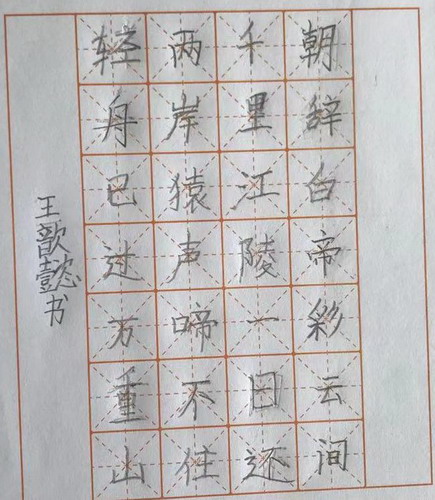 朝辞白帝彩云间
千里江陵一日还
两岸猿声啼不住
轻舟已过万重山
王歆懿书